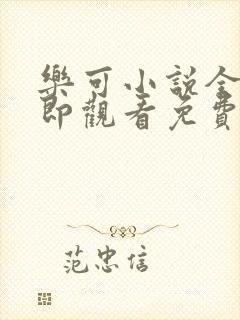 樂可小说全
即觀看免費
范忠信